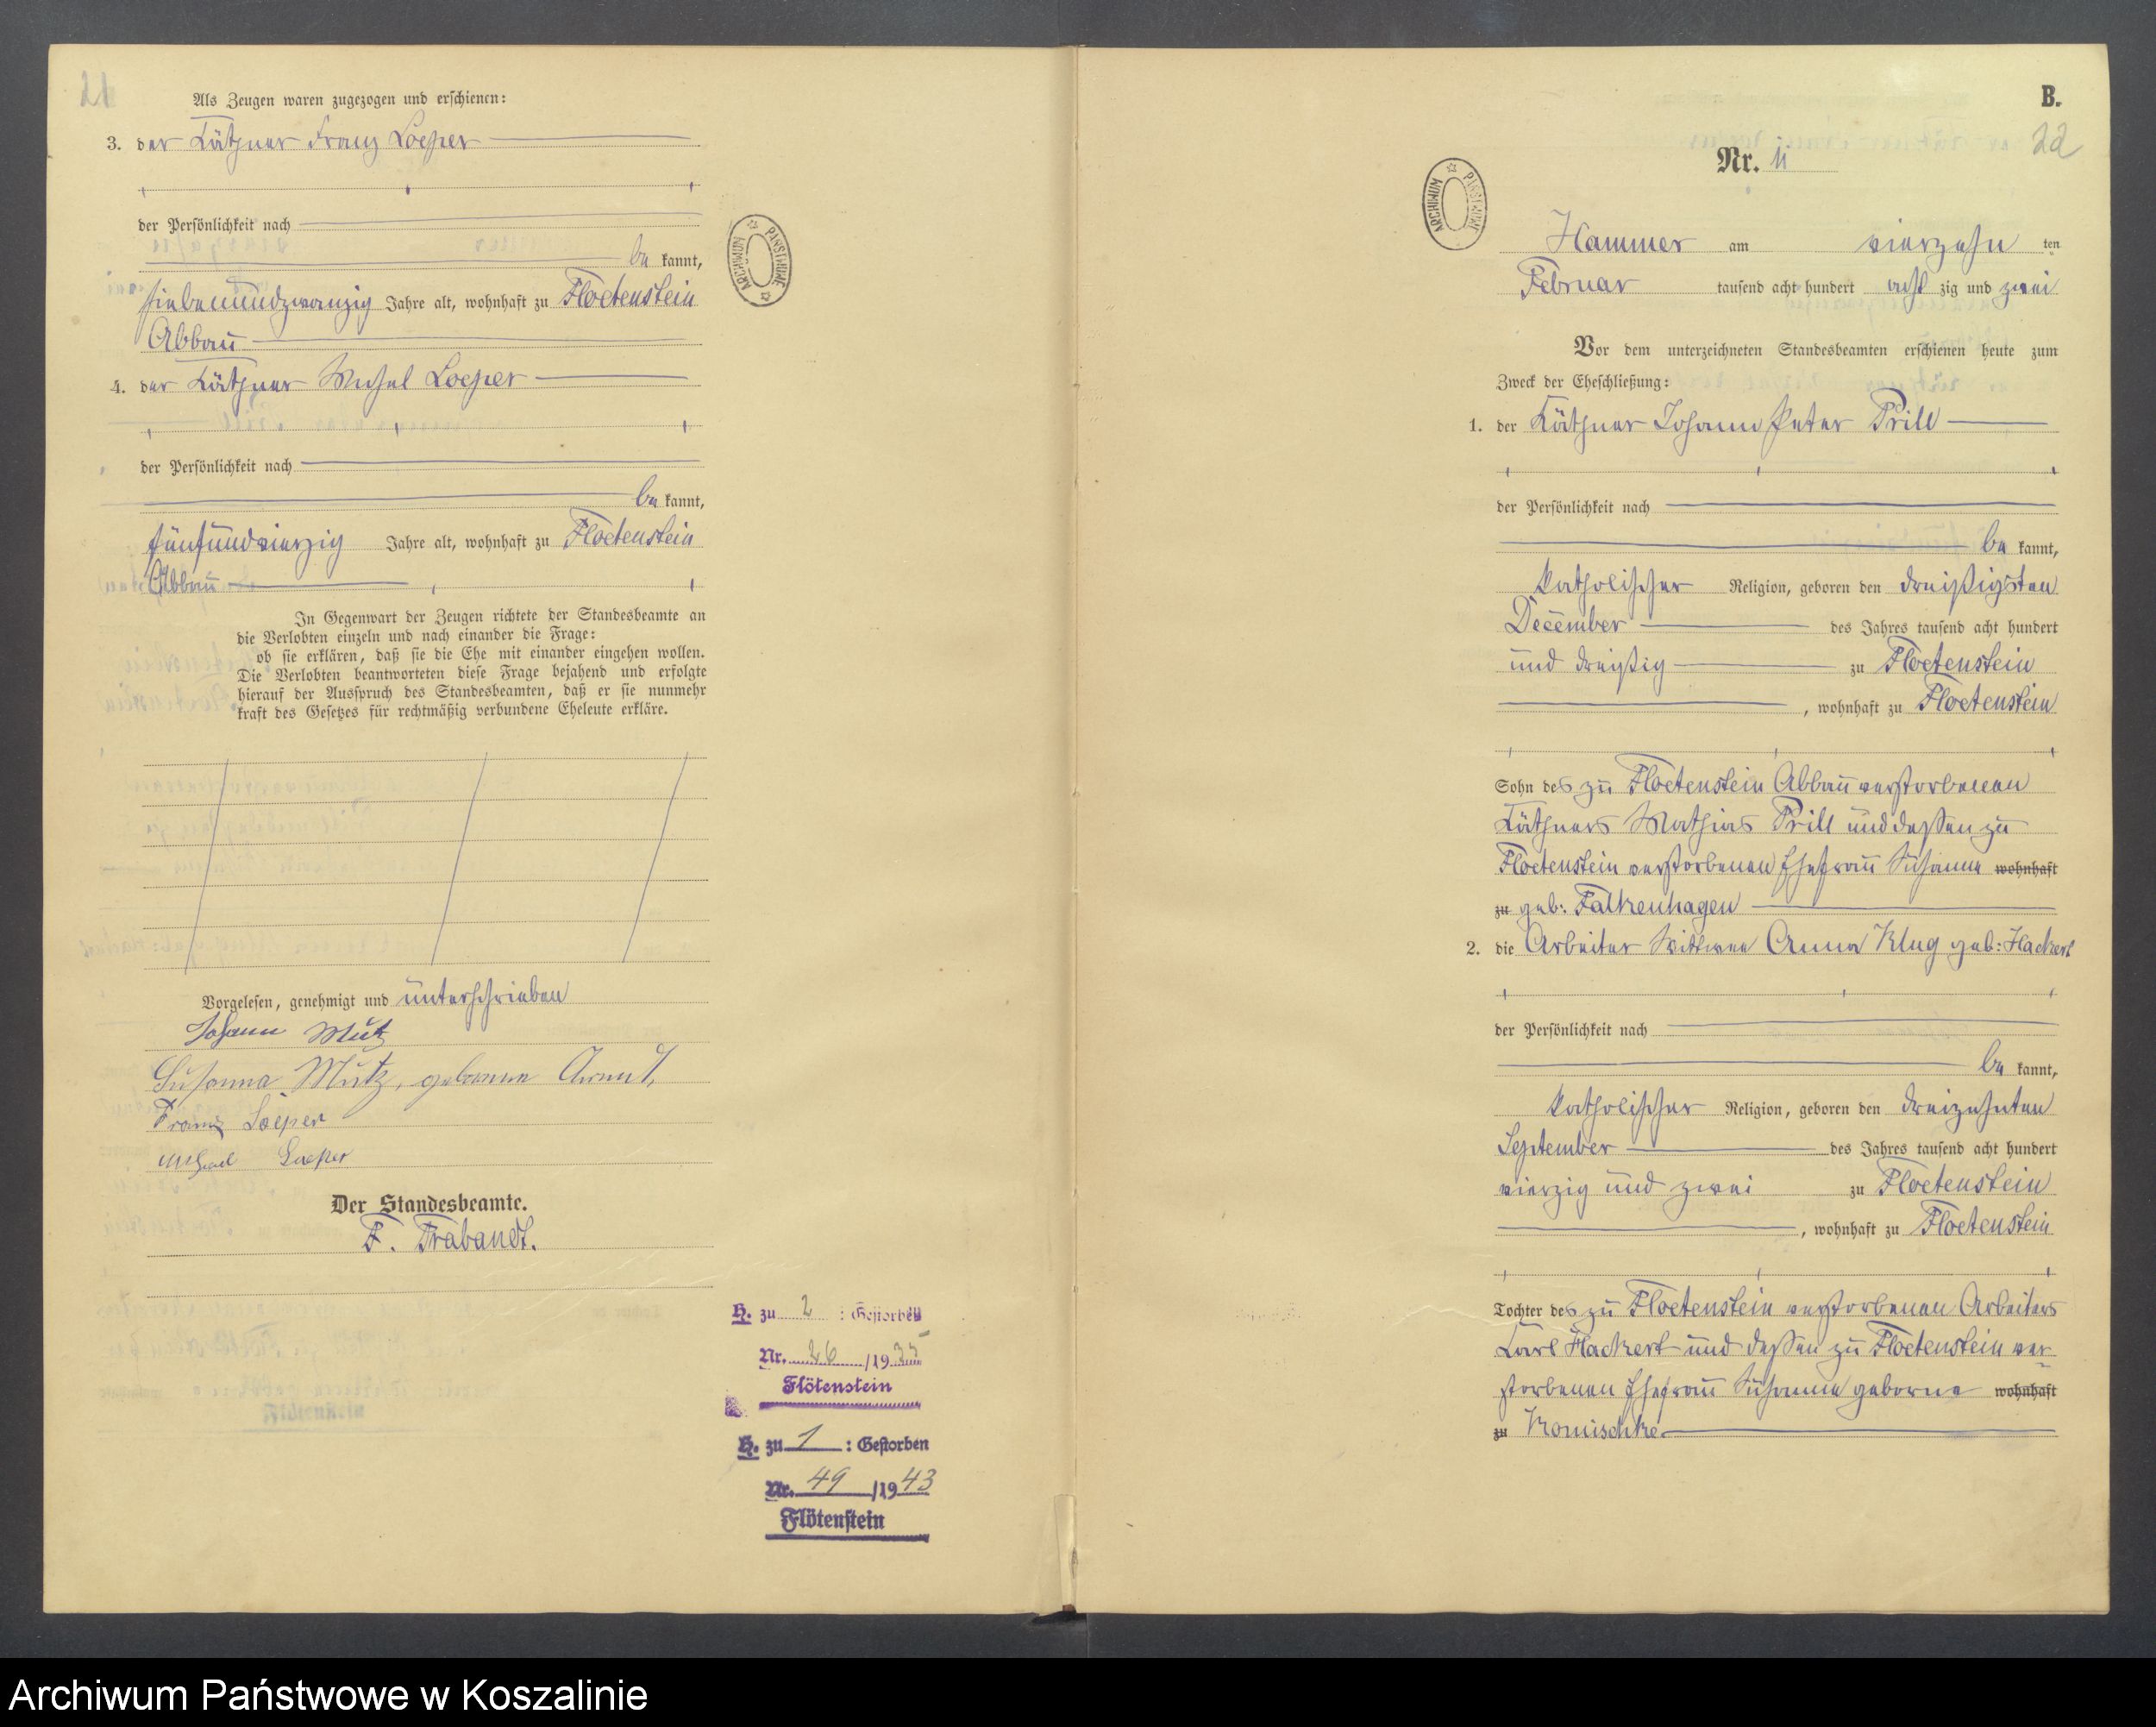 Als Zeugen waren zugezogen und erschienen:
3. der Käthner Franz Loeper
der Persönlichkeit nach
be kannt,
siebenundzwanzig Jahre alt, wohnhaft zu Floetenstein
Abbau
4. der Käthner Michel Loeper
der Persönlichkeit nach
be kannt,
fünfundvierzig Jahre alt, wohnhaft zu Floetenstein
Abbau
In Gegenwart der Zeugen richtete der Standesbeamte an
die Verlobten einzeln und nach einander die Frage:
ob sie erklären, daß sie die Ehe mit einander eingehen wollen.
Die Verlobten beantworteten diese Frage bejahend und erfolgte
hierauf der Ausspruch des Standesbeamten, daß er sie nunmehr
kraft des Gesetzes für rechtmäßig verbundene Eheleute erkläre.
Vorgelesen, genehmigt und unterschrieben
Johann Mutz
Susanna Mutz, geborenne Arndt,
Franz Loeper
Michael Loeper
Der Standesbeamte.
F. Trabandt.
H. zu 2 : Gestorben
Nr. 26 /1935
Flötenstein
H. zu 1 : Gestorben
Nr. 49 /1943
Flötenstein
ARCHIWUM PAŃSTWOWE
B.
22
Nr. 11
ARCHIWUM PAŃSTWOWE
Hammer am vierzehn ten
Februar tausend acht hundert acht zig und zwei
Vor dem unterzeichneten Standesbeamten erschienen heute zum
Zweck der Eheschließung:
1. der Käthner Johann Peter Prill
der Persönlichkeit nach
be kannt,
katholischer Religion, geboren den dreißigsten
December des Jahres tausend acht hundert
und dreißig zu Floetenstein
, wohnhaft zu Floetenstein
Sohn des zu Floetenstein Abbau verstorbenen
Käthners Mathias Prill und dessen zu
Floetenstein verstorbenen Ehefrau Susanna wohnhaft
zu geb: Falkenhagen
2. die Arbeiter Wittwe Anna Klug geb: Hackert
der Persönlichkeit nach
be kannt,
katholischer Religion, geboren den dreizehnten
September des Jahres tausend acht hundert
vierzig und zwei zu Floetenstein
, wohnhaft zu Floetenstein
Tochter des zu Floetenstein verstorbenen Arbeiters
Karl Hackert und dessen zu Floetenstein ver-
storbenen Ehefrau Susanna geborne wohnhaft
zu Komischke
Archiwum Państwowe w Koszalinie